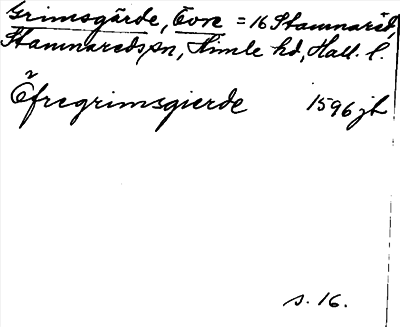 Grimsgärde, Övre = 16 Stamnared,
Stamnareds sn, Himle hd, Hall. l.
Öfregrimsgierde 1596 jb
s. 16.